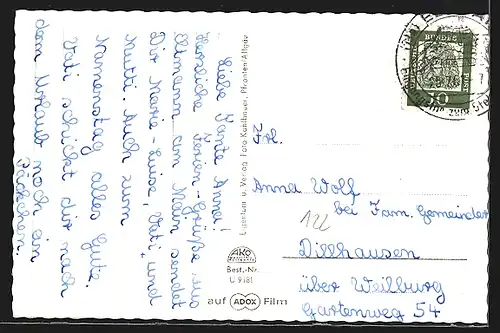 Liebe Tante Anna!
Herzliche Ferien-Grüße aus
Eltmann am Main sendet
Dir Marie-Luise, Vati, und
Mutti. Auch zum
Namenstag alles Gute.
Vati schickt dir nach
dem Urlaub noch ein
Päckchen.
Eigentum u. Verlag Foto Kohlbauer, Pfronten/Allgäu
AKO
Best.-Nr.
U 9181
auf ADOX Film
DEUTSCHE BUNDESPOST
10
Frl.
Anna Wolf
bei Fam. Gemeinder
122
Dillhausen
über Weilburg
Gartenweg 54